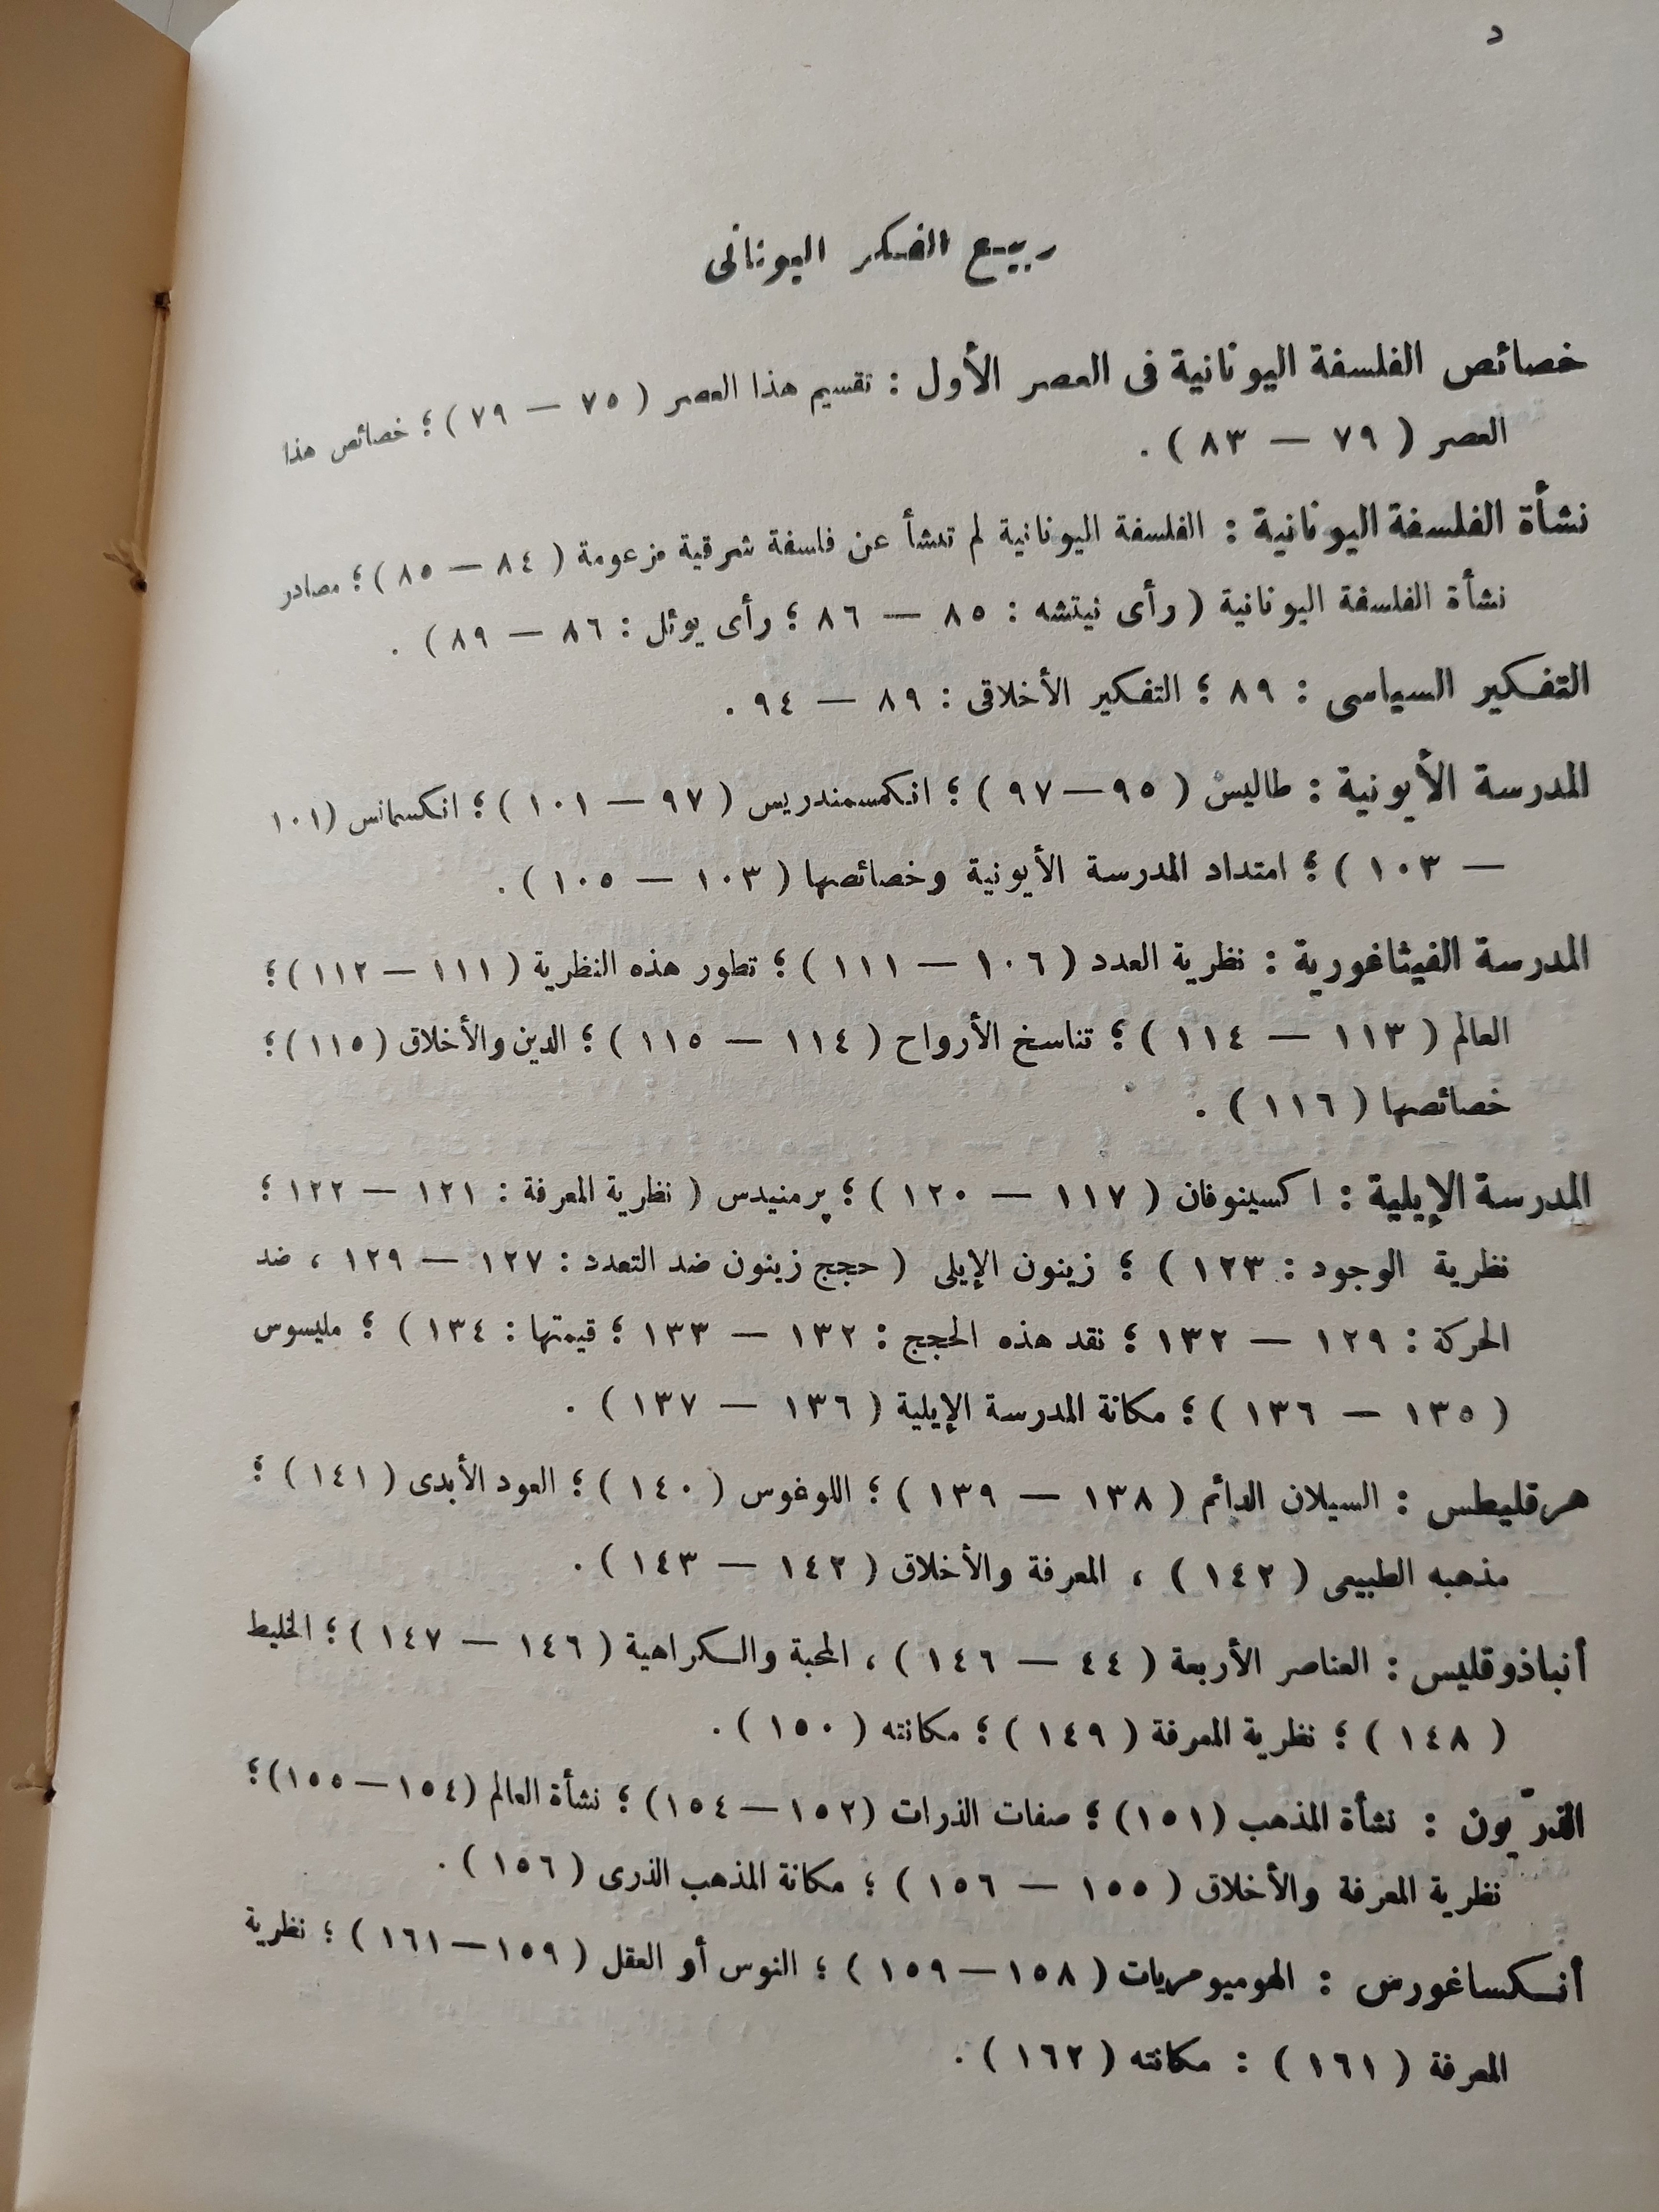 د
ربيع الفكر اليونانى
خصائص الفلسفة اليونانية فى العصر الأول : تقسيم هذا العصر ( ٧٥ — ٧٩ ) ؛ خصائص هذا
العصر ( ٧٩ — ٨٣ ) .
نشأة الفلسفة اليونانية : الفلسفة اليونانية لم تنشأ عن فلسفة شرقية مزعومة ( ٨٤ — ٨٥ ) ؛ مصادر
نشأة الفلسفة اليونانية ( رأى نيتشه : ٨٥ — ٨٦ ؛ رأى يوئل : ٨٦ — ٨٩ ) .
التفكير السياسى : ٨٩ ؛ التفكير الأخلاقى : ٨٩ — ٩٤ .
المدرسة الأيونية : طاليس ( ٩٥ — ٩٧ ) ؛ انكمسمندريس ( ٩٧ — ١٠١ ) ؛ انكسمانس ( ١٠١
— ١٠٣ ) ؛ امتداد المدرسة الأيونية وخصائصها ( ١٠٣ — ١٠٥ ) .
المدرسة الفيثاغورية : نظرية العدد ( ١٠٦ — ١١١ ) ؛ تطور هذه النظرية ( ١١١ — ١١٢ ) ؛
العالم ( ١١٣ — ١١٤ ) ؛ تناسخ الأرواح ( ١١٤ — ١١٥ ) ؛ الدين والأخلاق ( ١١٥ ) ؛
خصائصها ( ١١٦ ) .
المدرسة الإيلية : اكسينوفان ( ١١٧ — ١٢٠ ) ؛ برمنيدس ( نظرية المعرفة : ١٢١ — ١٢٢ ؛
نظرية الوجود : ١٢٣ ) ؛ زينون الإيلى ( حجج زينون ضد التعدد : ١٢٧ — ١٢٩ ، ضد
الحركة : ١٢٩ — ١٣٢ ؛ نقد هذه الحجج : ١٣٢ — ١٣٣ ؛ قيمتها : ١٣٤ ) ؛ مليسوس
( ١٣٥ — ١٣٦ ) ؛ مكانة المدرسة الإيلية ( ١٣٦ — ١٣٧ ) .
هرقليطس : السيلان الدائم ( ١٣٨ — ١٣٩ ) ؛ اللوغوس ( ١٤٠ ) ؛ العود الأبدى ( ١٤١ ) ؛
مذهبه الطبيعى ( ١٤٢ ) ، المعرفة والأخلاق ( ١٤٢ — ١٤٣ ) .
أنباذوقليس : العناصر الأربعة ( ٤٤ — ١٤٦ ) ، المحبة والكراهية ( ١٤٦ — ١٤٧ ) ؛ الخليط
( ١٤٨ ) ؛ نظرية المعرفة ( ١٤٩ ) ؛ مكانته ( ١٥٠ ) .
الذرّيون : نشأة المذهب ( ١٥١ ) ؛ صفات الذرات ( ١٥٢ — ١٥٤ ) ؛ نشأة العالم ( ١٥٤ — ١٥٥ ) ؛
نظرية المعرفة والأخلاق ( ١٥٥ — ١٥٦ ) ؛ مكانة المذهب الذرى ( ١٥٦ ) .
أنكساغورس : الهوميومريات ( ١٥٨ — ١٥٩ ) ؛ النوس أو العقل ( ١٥٩ — ١٦١ ) ؛ نظرية
المعرفة ( ١٦١ ) : مكانته ( ١٦٢ ) .